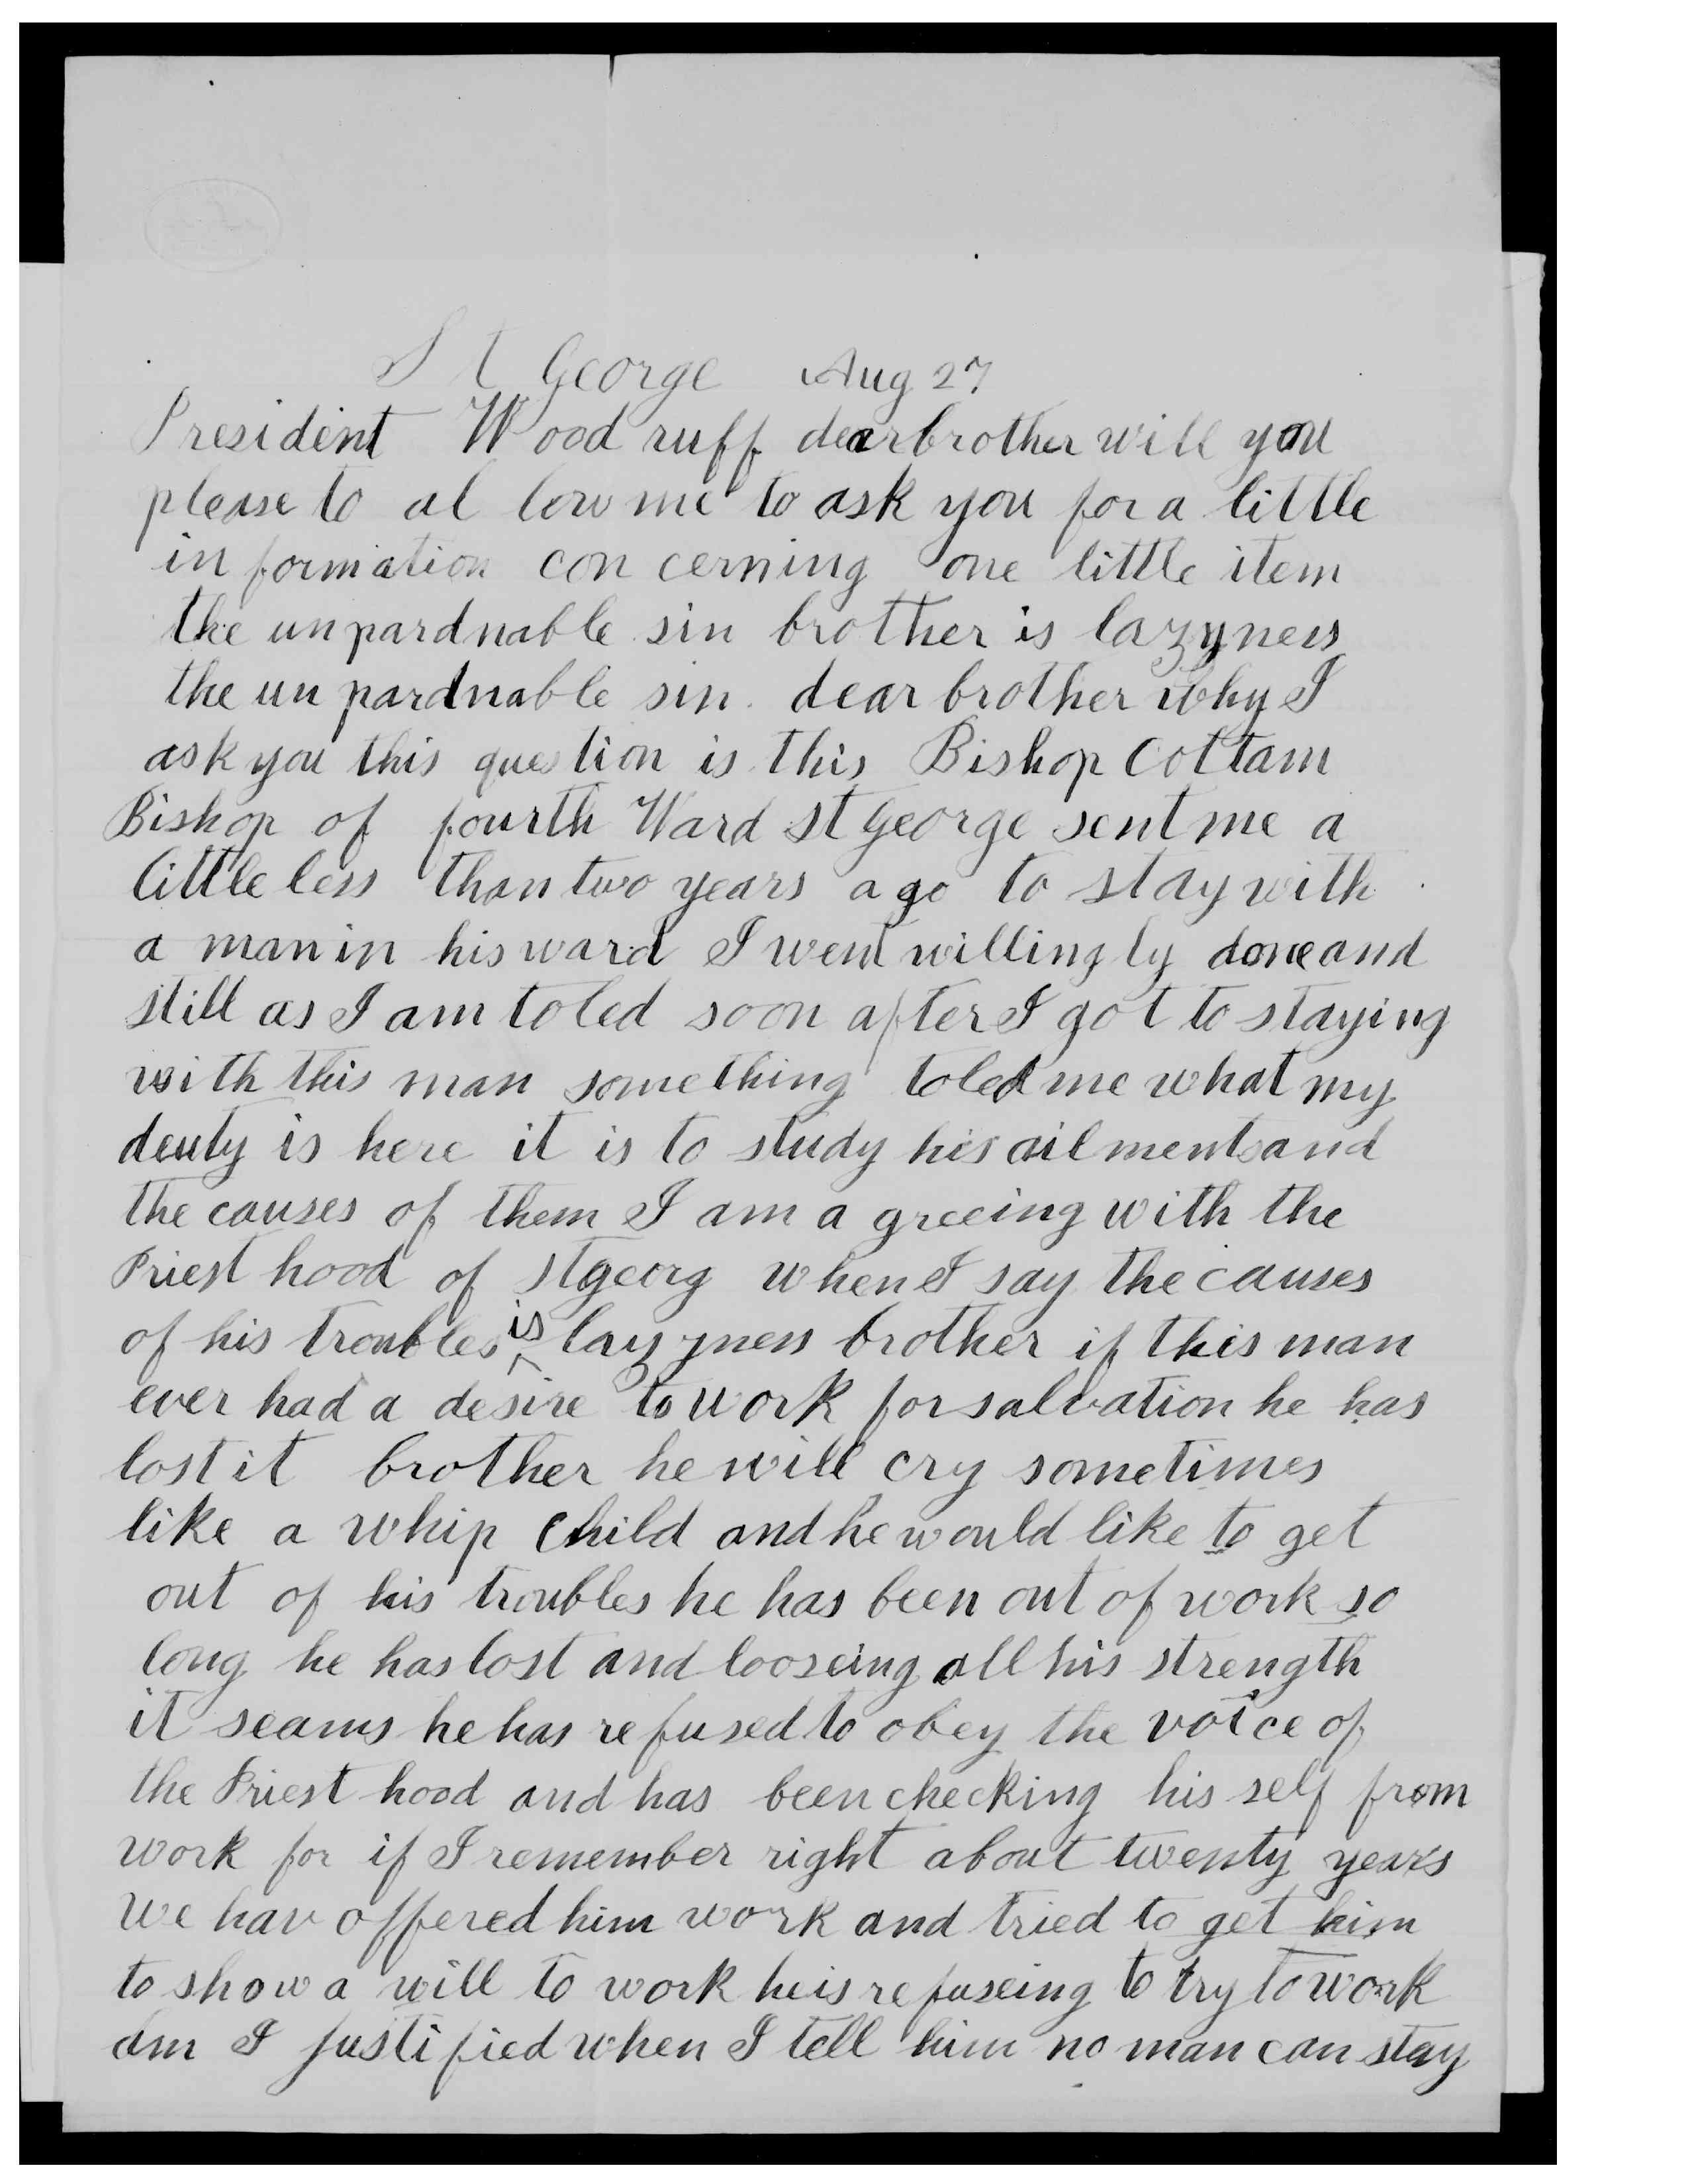 St George Aug 27
President Wood ruff dear brother will you
please to al low me to ask you for a little
in formation con cerning one little item
the un pardnable sin brother is lazyness
the un pardnable sin. dear brother why I
ask you this question is this Bishop Cottam
Bishop of fourth Ward St George sent me a
little less than two years a go to stay with
a man in his ward I went willing ly done and
still as I am toled soon after I got to staying
with this man some thing toled me what my
deuty is here it is to study his ail ments and
the causes of them I am a greeing with the
Priest hood of St georg when I say the causes
of his troubles is lazyness brother if this man
ever had a desire to work for salvation he has
lost it brother he will cry sometimes
like a whip child and he would like to get
out of his troubles he has been out of work so
long he has lost and looseing all his strength
it seams he has re fused to obey the voice of
the Priest hood and has been checking his self from
work for if I remember right about twenty years
we hav offered him work and tried to get him
to show a will to work he is re fuseing to try to work
am I justi fied when I tell him no man can stay